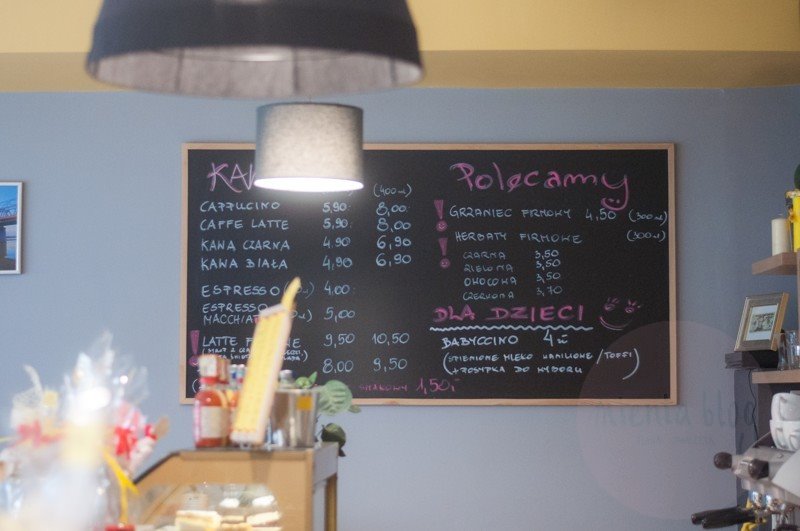 Polecamy
(400ml)
CAPPUCINO 5,90 8,00
CAFFE LATTE 5,90 8,00
KAWA CZARNA 4,90 6,90
KAWA BIAŁA 4,90 6,90
ESPRESSO 4,00
ESPRESSO
MACCHIA 5,00
LATTE 9,50 10,50
8,00 9,50
SMAKOWY 1,50
! GRZANIEC FIRMOWY 4,50 (300ml)
! HERBATY FIRMOWE (300ml)
CZARNA 3,50
ZIELONA 3,50
OWOCOWA 3,50
CZERWONA 3,70
DLA DZIECI
BABYCCINO 4 zł
(SPIENIONE MLEKO WANILIOWE/TOFFI
+ POSYPKA DO WYBORU)
blog